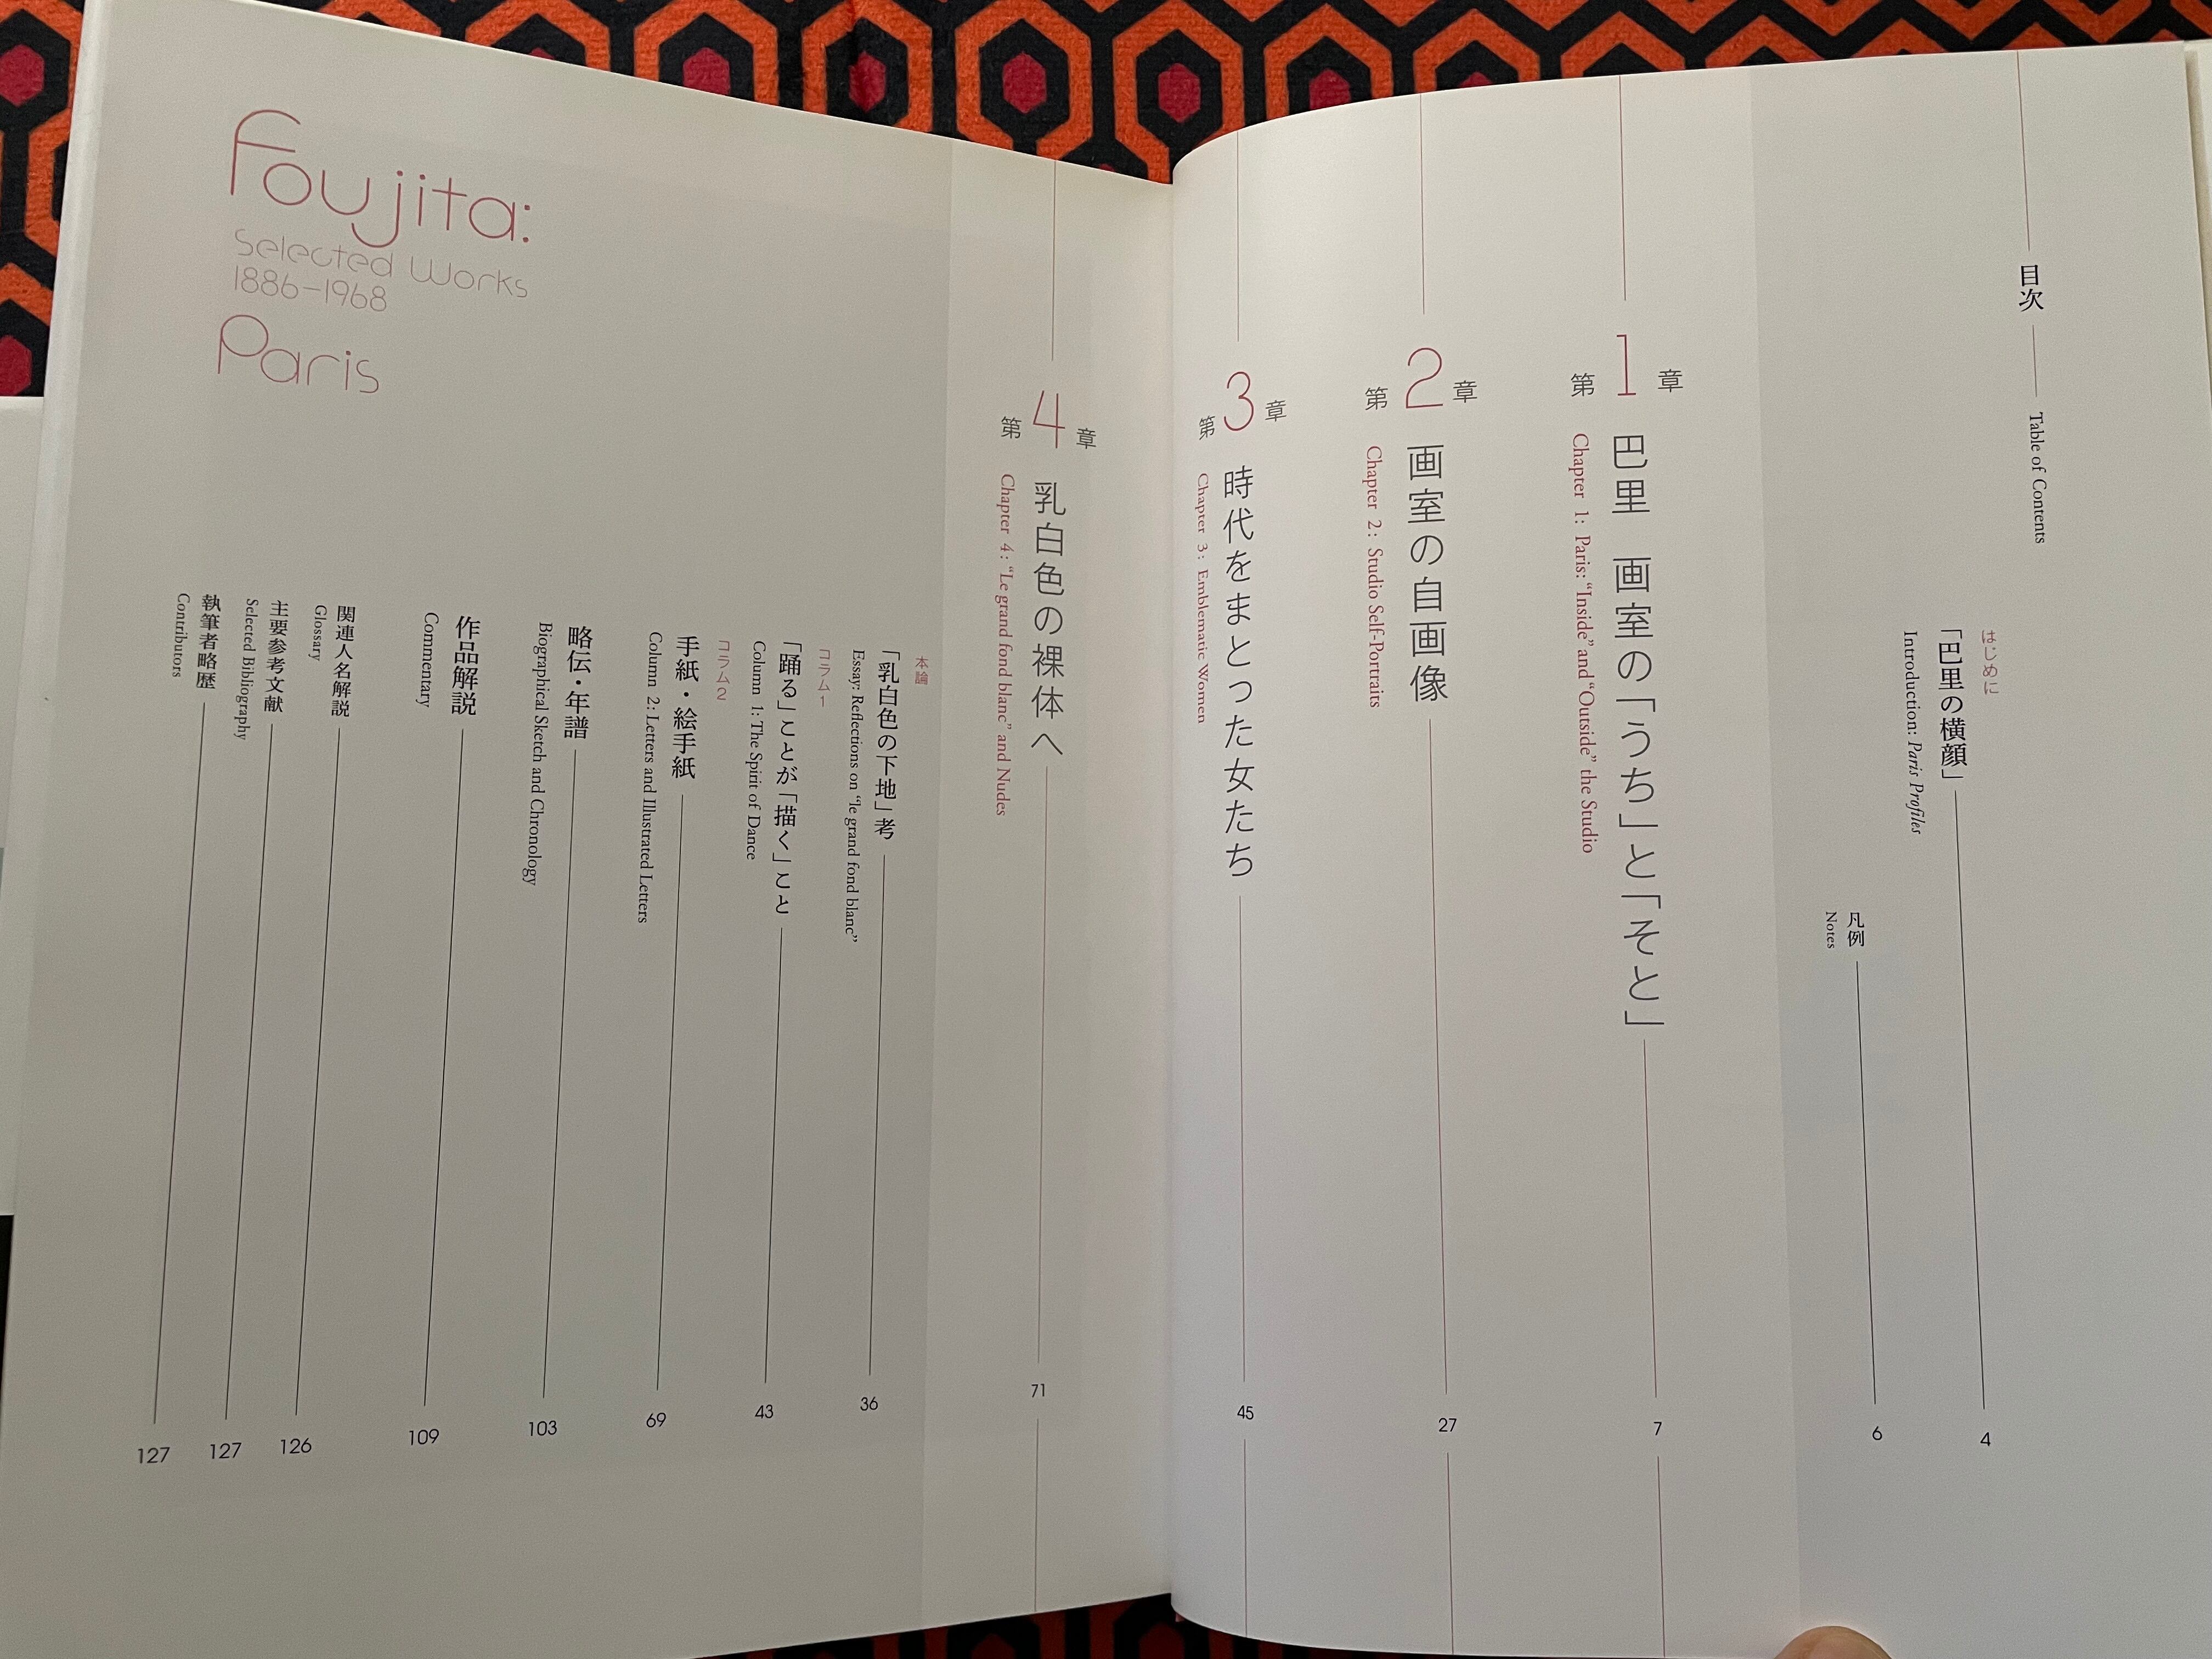 目次
Table of Contents
はじめに
「巴里の横顔」
4
Introduction: Paris Profiles
凡例
6
Notes
第1章
巴里 画室の「うち」と「そと」
7
Chapter 1: Paris: “Inside” and “Outside” the Studio
第2章
画室の自画像
27
Chapter 2: Studio Self-Portraits
第3章
時代をまとった女たち
45
Chapter 3: Emblematic Women
第4章
乳白色の裸体へ
71
Chapter 4: “Le grand fond blanc” and Nudes
本論
「乳白色の下地」考
36
Essay: Reflections on “le grand fond blanc”
コラム1
「踊る」ことが「描く」こと
43
Column 1: The Spirit of Dance
コラム2
手紙・絵手紙
69
Column 2: Letters and Illustrated Letters
略伝・年譜
103
Biographical Sketch and Chronology
作品解説
109
Commentary
関連人名解説
126
Glossary
主要参考文献
127
Selected Bibliography
執筆者略歴
127
Contributors
Foujita:
Selected Works
1886-1968
Paris